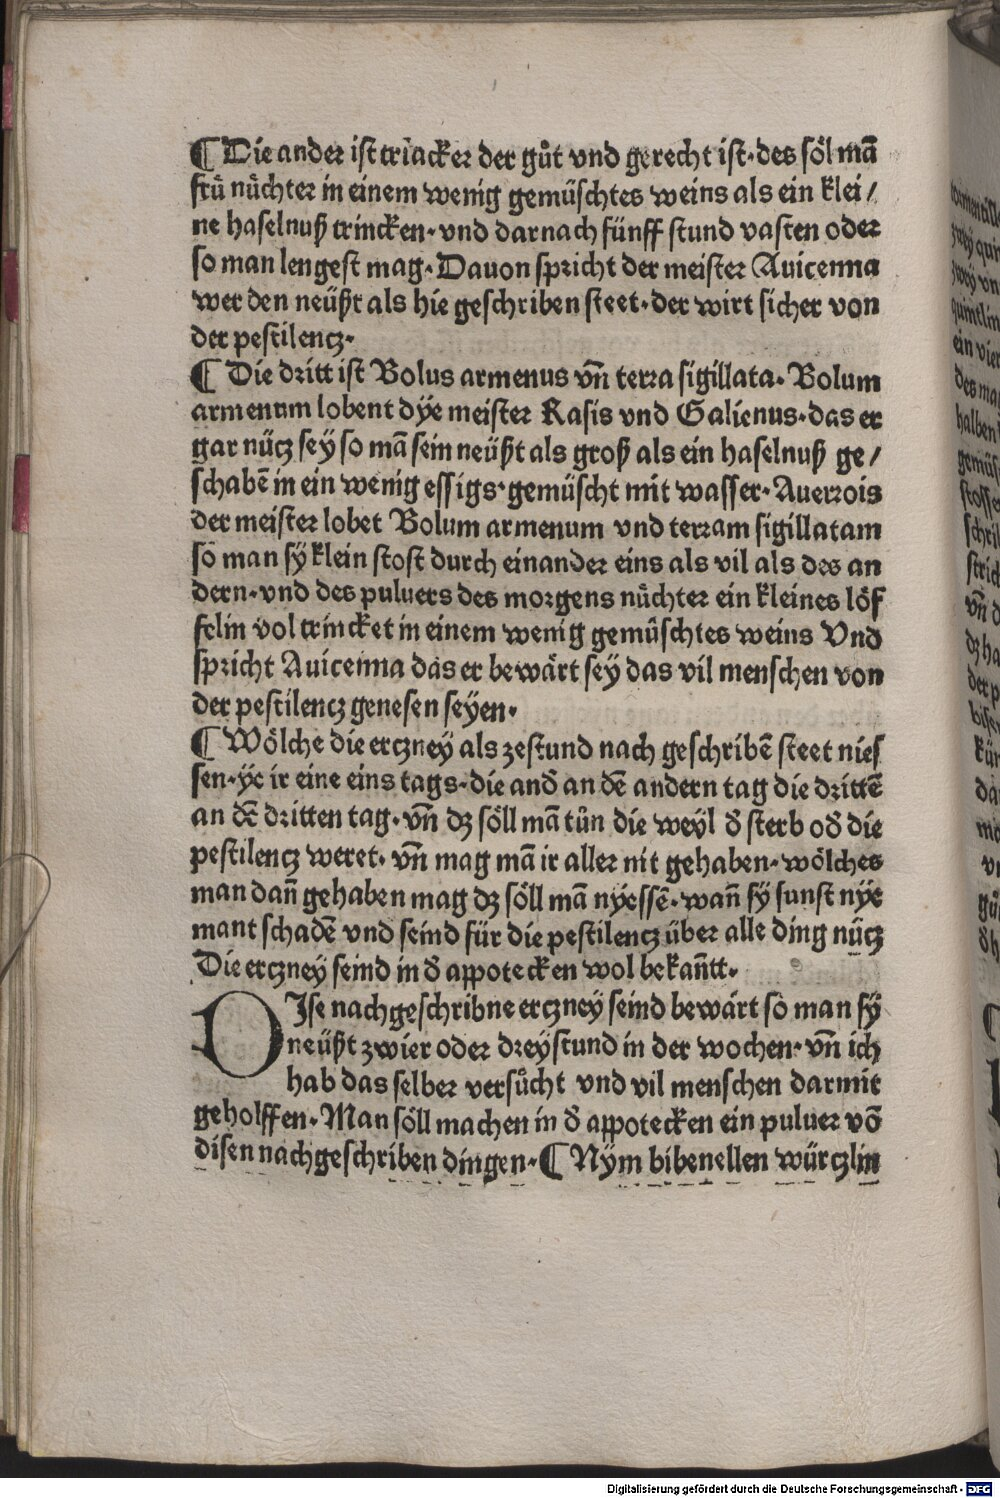 ¶ Die ander ist triacker der gůt vnd gerecht ist· des söl mā
frü nüchter in einem wenig gemüschtes weins als ein klei/
ne haselnuß trincken· vnd darnach fünff stund vasten oder
so man lengest mag· Dauon spricht der meister Auicenna
wer den neüßt als hie geschriben steet· der wirt sicher von
der pestilencz·
¶ Die dritt ist Bolus armenus vn̄ terra sigillata· Bolum
armenum lobent dÿe meister Rasis vnd Galienus· das er
gar nücz seÿ so mā sein neüßt als groß als ein haselnuß ge/
schabē in ein wenig essigs· gemüscht mit wasser· Auerrois
der meister lobet Bolum armenum vnd terram sigillatam
so man sÿ klein stost durch einander eins als vil als des an
dern· vnd des puluers des morgens nüchter ein kleines löf
felin vol trincket in einem wenig gemüschtes weins Vnd
spricht Auicenna das er bewärt seÿ das vil menschen von
der pestilencz genesen seyen·
¶ Wölche die erczneÿ als zestund nach geschribē steet nies
sen· ye ir eine eins tags· die and̄ an dē andern tag die drittē
an dē dritten tag· vn̄ dz söll mā tůn die weÿl d̄ sterb od̄ die
pestilencz weret· vn̄ mag mā ir aller nit gehaben· wölches
man dan̄ gehaben mag dz söll mā nyessē· wan̄ sÿ sunst nÿe
mant schadē vnd seind für die pestilencz über alle ding nücz
Die erczneÿ seind in d̄ appotecken wol bekan̄tt·
DIse nachgeschribne erczneÿ seind bewärt so man sÿ
neüßt zwier oder dreÿstund in der wochen· vn̄ ich
hab das selber versůcht vnd vil menschen darmit
geholffen· Man söll machen in d̄ appotecken ein puluer vō
disen nachgeschriben dingen· ¶ Nÿm bibenellen würczlin
Digitalisierung gefördert durch die Deutsche Forschungsgemeinschaft - DFG